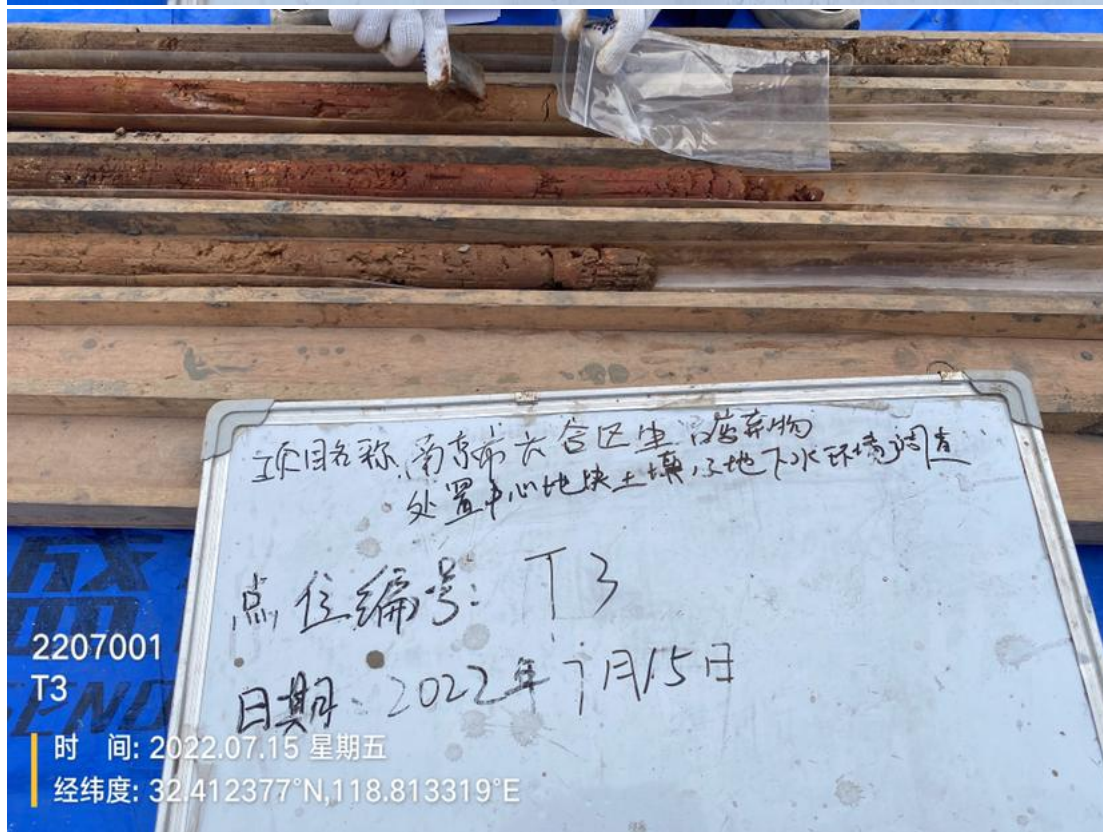 项目名称 南京市六合区生活废弃物
处置中心地块土壤及地下水环境调查
点位编号: T3
日期: 2022年7月15日
2207001
T3
时 间: 2022.07.15 星期五
经纬度: 32.412377°N,118.813319°E